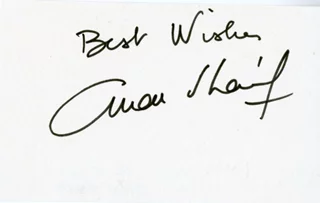 Best Wishes
Omar Sharif